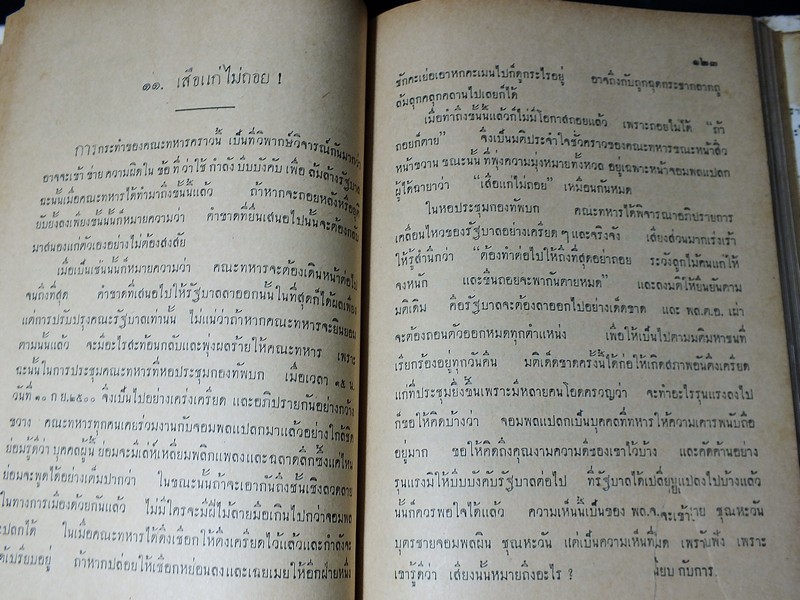 ๑๑. เสือแก่ไม่ถอย !
การกระทำของคณะทหารคราวนี้ เป็นที่วิพากษ์วิจารณ์กันมากว่า
อาจจะเข้าข่ายความผิดในข้อที่ว่าใช้กำลังบีบบังคับ เพื่อล้มล้างรัฐบาล
ฉะนั้นเมื่อคณะทหารได้ทำมาถึงขั้นนี้แล้ว ถ้าหากจะถอยหลังหรือ
ยับยั้งลงเพียงขั้นนั้นก็หมายความว่า คำขาดที่ยื่นเสนอไปนั้นจะต้องกลับ
มาสนองแก่ตัวเองอย่างไม่ต้องสงสัย
เมื่อเป็นเช่นนั้นก็หมายความว่า คณะทหารจะต้องเดินหน้าต่อไป
จนถึงที่สุด คำขาดที่เสนอไปให้รัฐบาลลาออกนั้นในที่สุดก็ได้ผลเพียง
แต่การปรับปรุงคณะรัฐบาลเท่านั้น ไม่แน่ว่าถ้าหากคณะทหารจะยินยอม
ตามนั้นแล้ว จะมีอะไรสะท้อนกลับและพุ่งผลร้ายให้คณะทหาร เพราะ
ฉะนั้นในการประชุมคณะทหารที่หอประชุมกองทัพบก เมื่อเวลา ๑๕ น.
วันที่ ๑๐ ก.ย.๒๕๐๐ จึงเป็นไปอย่างเคร่งเครียด และอภิปรายกันอย่างกว้าง
ขวาง คณะทหารทุกคนเคยร่วมงานกับจอมพลแปลกมาแล้วอย่างใกล้ชิด
ย่อมรู้ดีว่า บุคคลผู้นี้ย่อมจะมีเล่ห์เหลี่ยมพลิกแพลงและฉลาดลึกซึ้งแค่ไหน
ย่อมจะพูดได้อย่างเต็มปากว่า ในขณะนั้นถ้าจะเอากันถึงชั้นเชิงลวดลาย
ในทางการเมืองด้วยกันแล้ว ไม่มีใครจะมีฝีไม้ลายมือเกินไปกว่าจอมพล
แปลกได้ ในเมื่อคณะทหารได้ดึงเชือกให้ตึงเครียดไว้แล้วและกำลังจะ
ได้เปรียบอยู่ ถ้าหากปล่อยให้เชือกหย่อนลงและเฉยเมยให้อีกฝ่ายหนึ่ง
๑๒๓
ชักคะเย่อเอาหกคะเมนไปก็ดูกระไรอยู่ อาจถึงกับถูกฉุดกระชากลากถู
ล้มลุกคลุกคลานไปเลยก็ได้
เมื่อทำถึงขั้นนี้แล้วก็ไม่มีโอกาสถอยแล้ว เพราะถอยไม่ได้ “ถ้า
ถอยก็ตาย” จึงเป็นมติประจำใจชั่วคราวของคณะทหารขณะหน้าสิ่ว
หน้าขวาน ขณะนั้น ที่พุ่งความมุ่งหมายทั้งหวล อยู่เฉพาะหน้าจอมพลแปลก
ผู้ได้ฉายาว่า “เสือแก่ไม่ถอย” เหมือนกันหมด
ในหอประชุมกองทัพบก คณะทหารได้พิจารณาอภิปรายการ
เคลื่อนไหวของรัฐบาลอย่างเครียดๆ และจริงจัง เสียงส่วนมากเร่งเร้า
ให้รู้สำนึกว่า “ต้องทำต่อไปให้ถึงที่สุดอย่าถอย ระวังลูกไม้คนแก่ให้
จงหนัก และขืนถอยจะพากันตายหมด” และลงมติให้ยืนยันตาม
มติเดิม คือรัฐบาลจะต้องลาออกไปอย่างเด็ดขาด และ พล.ต.อ. เผ่า
จะต้องถอนตัวออกหมดทุกตำแหน่ง เพื่อให้เป็นไปตามมติมหาชนที่
เรียกร้องอยู่ทุกวันคืน มติเด็ดขาดครั้งนี้ได้ก่อให้เกิดสภาพอันตึงเครียด
แก่ที่ประชุมยิ่งขึ้นเพราะมีหลายคนโอดครวญว่า จะทำอะไรรุนแรงลงไป
ก็ขอให้คิดบ้างว่า จอมพลแปลกเป็นบุคคลที่ทหารให้ความเคารพนับถือ
อยู่มาก ขอให้คิดถึงคุณงามความดีของเขาไว้บ้าง และคัดค้านอย่าง
รุนแรงมิให้บีบบังคับรัฐบาลต่อไป ที่รัฐบาลได้เปลี่ยนแปลงไปบ้างแล้ว
นั้นก็ควรพอใจได้แล้ว ความเห็นนี้เป็นของ พล.จ. ชุณหะวัน
บุตรชายจอมพลผิน ชุณหะวัน แต่เป็นความเห็นที่ เพราะ
เขารู้ดีว่า เสียงนั้นหมายถึงอะไร ?